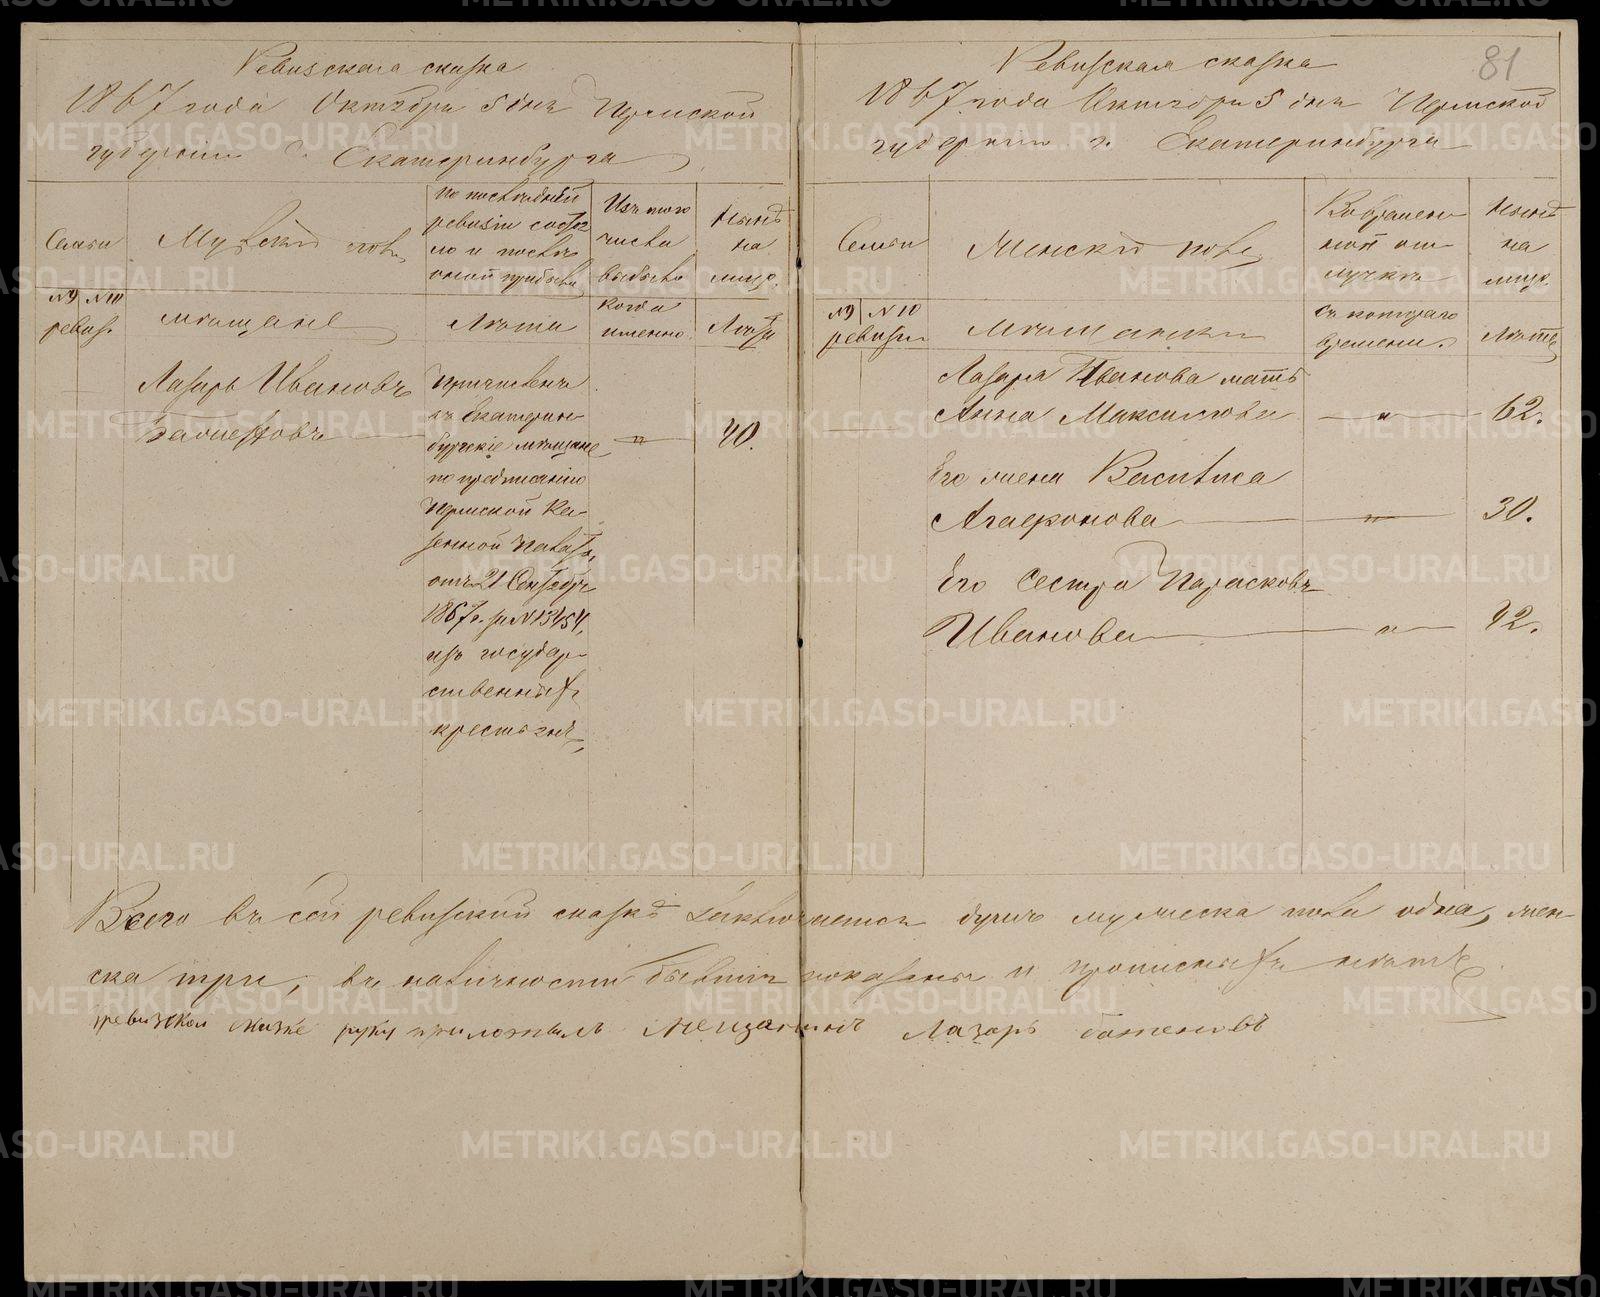 Ревизская сказка
1867 года Октября 5 дня Пермской
губернии г. Екатеринбурга
Семьи
Мужский полъ
По последней
ревизіи состоя
ло и после
оной прибыло
Изъ того
числа
выбыло
Ныне
на
лицо.
№9 №10
ревиз.
мещане
Лета
Когда
именно.
Лета
Лазарь Ивановъ
Баженовъ
Причисленъ
въ Екатерин
бургскіе мещане
по предписанію
Пермской Ка-
зенной Палаты,
отъ 21 Сентября
1867 г. за №13454,
изъ государ-
ственныхъ
крестьянъ,
" 40.
81
Ревизская сказка
1867 года Октября 5 дня Пермской
губерніи г. Екатеринбурга
Семьи
Женскій полъ
Во времен
ной от
лучке
Ныне
на
лицо.
№9 №10
ревизіи
мещанки
съ котораго
времени.
Лета
Лазаря Иванова мать
Анна Максимова " 62.
Его жена Василиса
Агафонова " 30.
Его сестра Парасковья
Иванова " 42.
Всего въ сей ревизской сказке заключается душъ мужеска пола одна, жен-
ска три, въ наличности бывшія показаны и прописныхъ нетъ
ревизской сказке руку приложилъ мещанинъ Лазарь баженовъ
METRIKI.GASO-URAL.RU